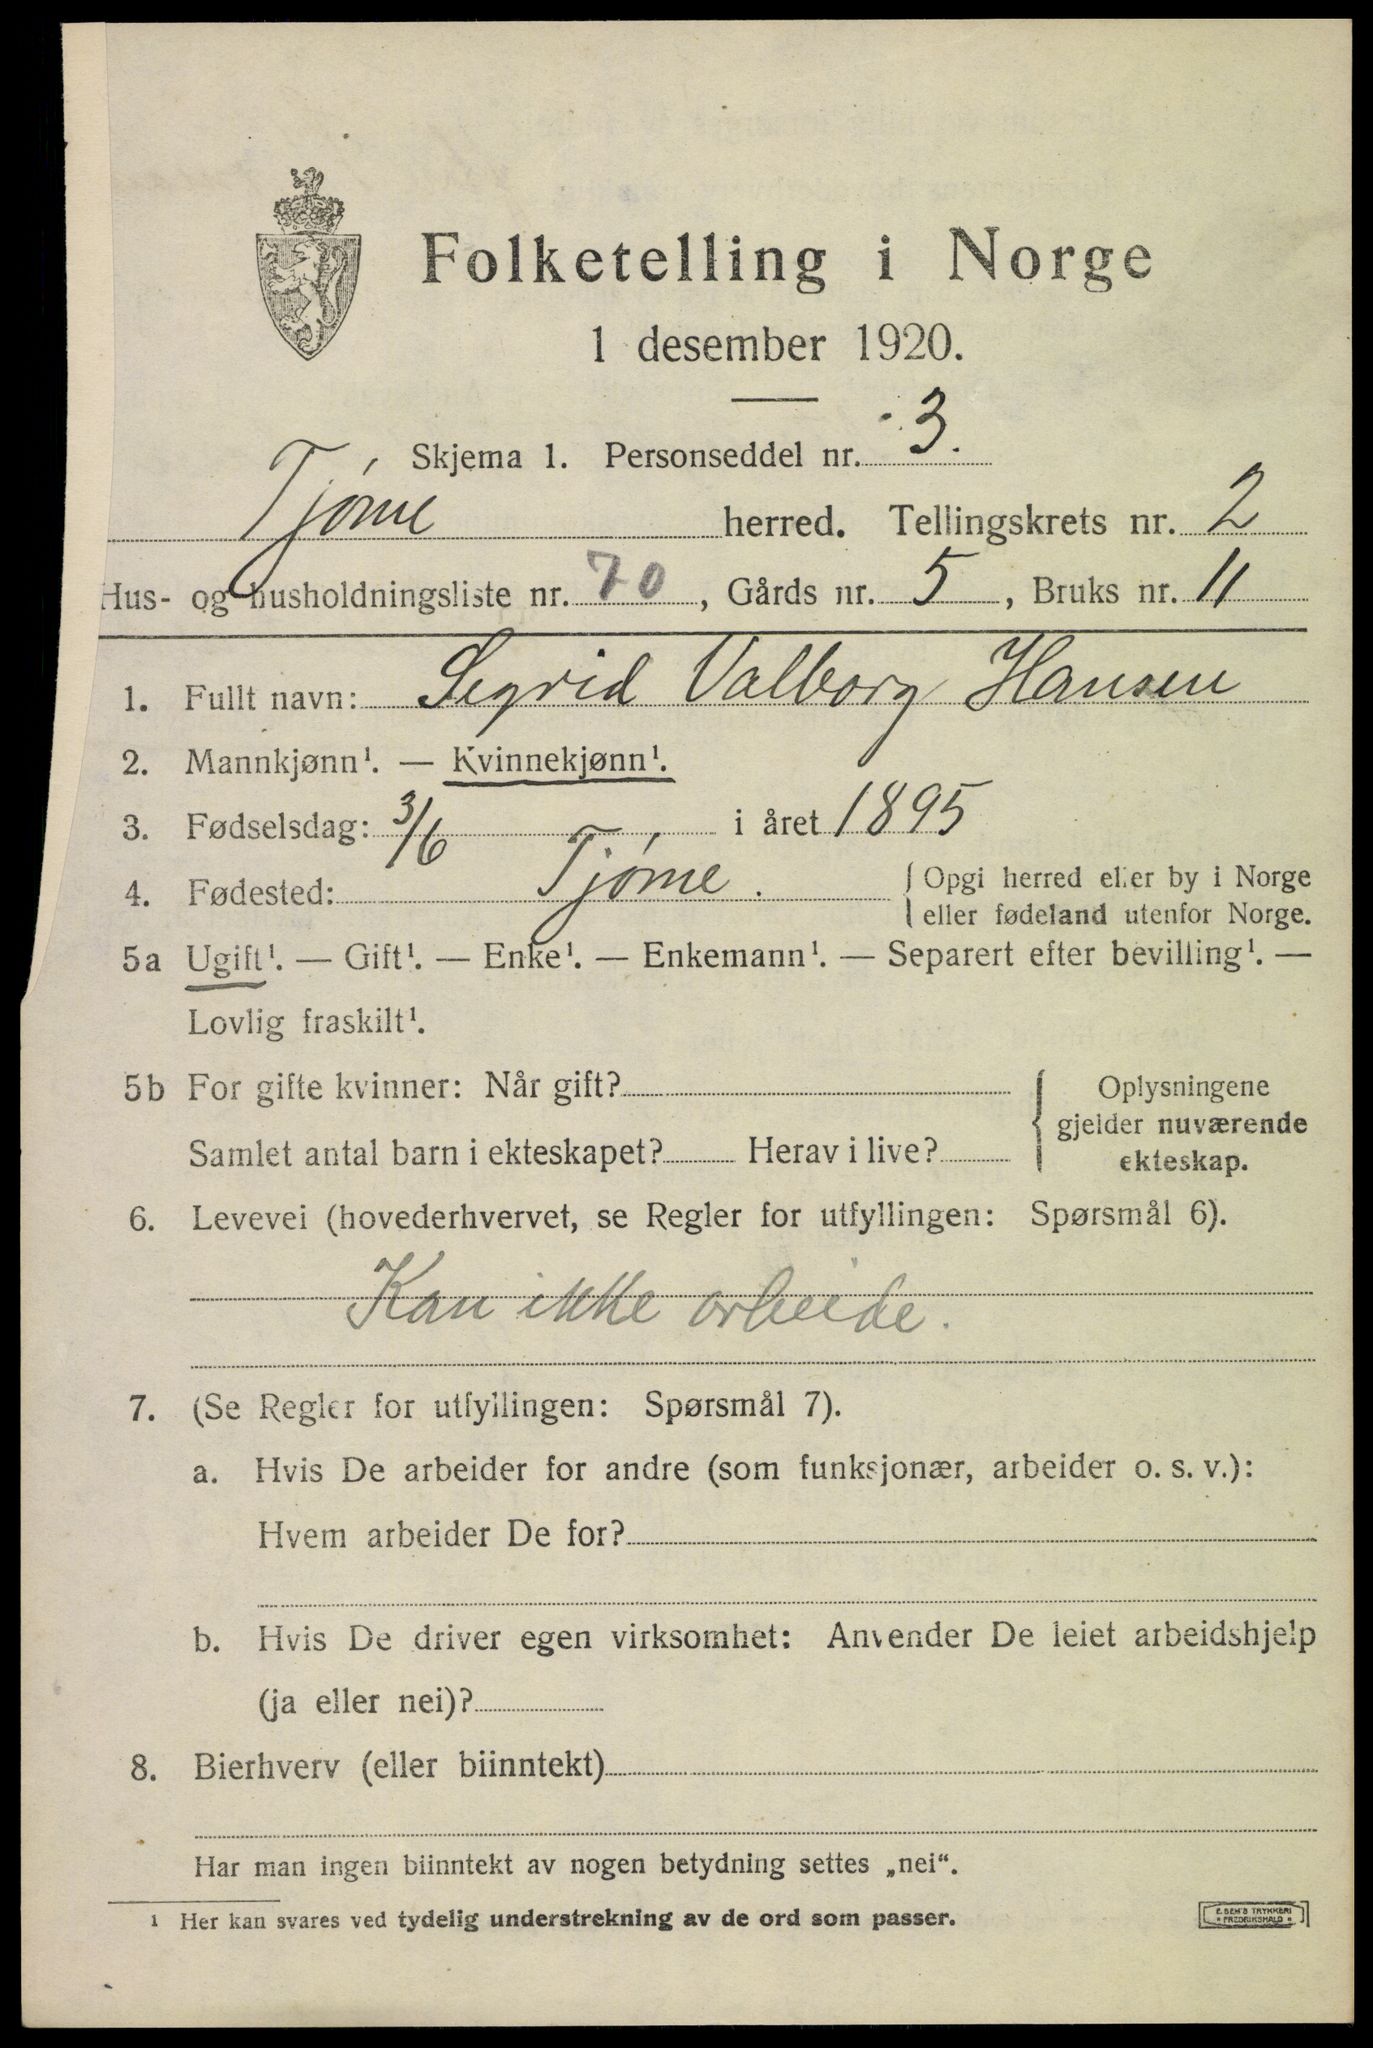 Folketelling i Norge
1 desember 1920.
Skjema 1. Personseddel nr. 3.
Tjøme herred. Tellingskrets nr. 2
Hus- og husholdningsliste nr. 70, Gårds nr. 5, Bruks nr. 11
1. Fullt navn: Segrid Valborg Hansen
2. Mannkjønn¹. — Kvinnekjønn¹.
3. Fødselsdag: 3/6 i året 1895
4. Fødested: Tjøme. Opgi herred eller by i Norge
eller fødeland utenfor Norge.
5a Ugift¹. — Gift¹. — Enke¹. — Enkemann¹. — Separert efter bevilling¹. —
Lovlig fraskilt¹.
5b For gifte kvinner: Når gift?
Samlet antal barn i ekteskapet? Herav i live?
Oplysningene
gjelder nuværende
ekteskap.
6. Levevei (hovederhvervet, se Regler for utfyllingen: Spørsmål 6).
Kan ikke arbeide.
7. (Se Regler for utfyllingen: Spørsmål 7).
a. Hvis De arbeider for andre (som funksjonær, arbeider o. s. v.):
Hvem arbeider De for?
b. Hvis De driver egen virksomhet: Anvender De leiet arbeidshjelp
(ja eller nei)?
8. Bierhverv (eller biinntekt)
Har man ingen biinntekt av nogen betydning settes „nei“.
¹ Her kan svares ved tydelig understrekning av de ord som passer.
E. SEM'S TRYKKERI
* FREDRIKSHALD *